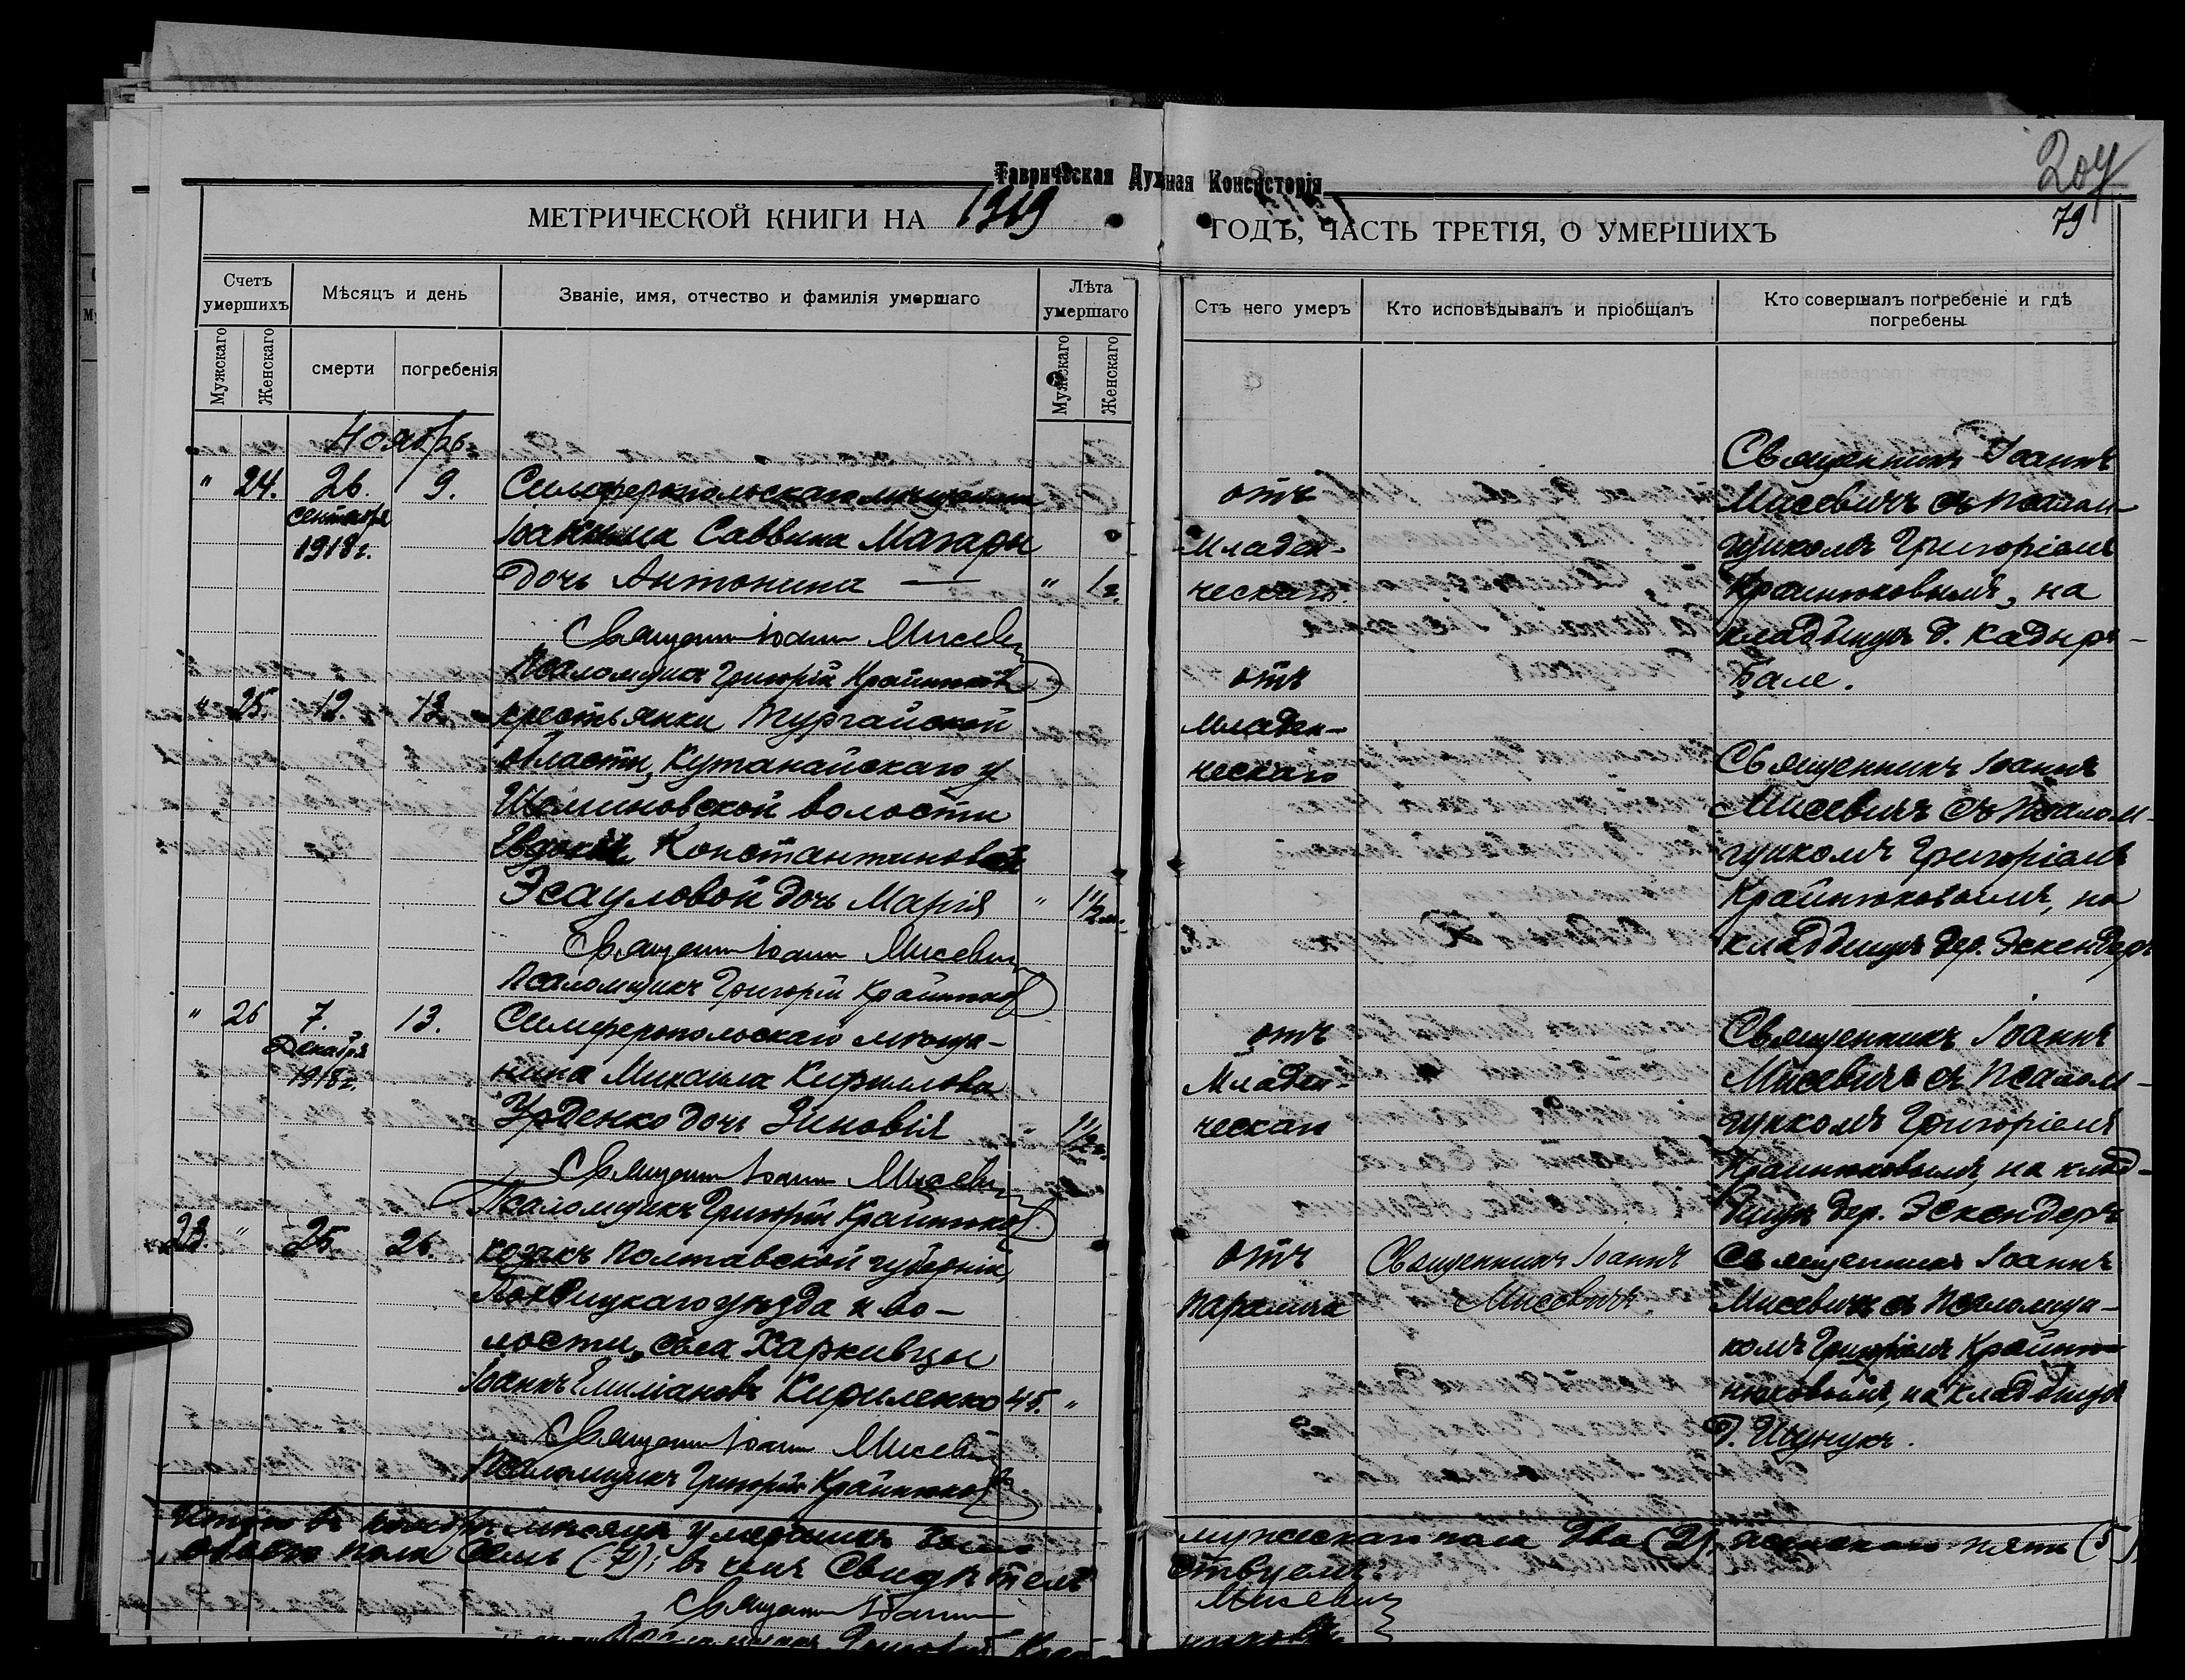 204
79
Таврическая Духная Консисторія
МЕТРИЧЕСКОЙ КНИГИ НА 1919 ГОДЪ, ЧАСТЬ ТРЕТІЯ, О УМЕРШИХЪ
Счетъ умершихъ
Мужскаго
Женскаго
Мѣсяцъ и день
смерти
погребенія
Званіе, имя, отчество и фамилія умершаго
Лѣта умершаго
Мужскаго
Женскаго
Отъ чего умеръ
Кто исповѣдывалъ и пріобщалъ
Кто совершалъ погребеніе и гдѣ погребены
Ноябрь
" 24. 26. 9.
сентября
1918 г.
Симферопольскаго мѣщанина
Іоанна Саввина Магары
дочь Антонина — " 1 г.
Священникъ Іоаннъ Мисевичъ
Псаломщикъ Григорій Крайнюковъ
отъ
младен-
ческаго
Священникъ Іоаннъ
Мисевичъ съ псалом-
щикомъ Григоріемъ
Крайнюковымъ, на
кладбищѣ д. Кадыръ-
Бале.
" 25. 12. 13
крестьянки Тургайской
области, Кустанайскаго у
волости
Евдокіи Константиновой
Эсауловой дочь Марія " 1 1/2 м.
Священникъ Іоаннъ Мисевичъ
Псаломщикъ Григорій Крайнюковъ
отъ
младен-
ческаго
Священникъ Іоаннъ
Мисевичъ съ псалом-
щикомъ Григоріемъ
Крайнюковымъ, на
кладбищѣ дер. Эскендеръ
" 26 7. 13.
Декабря
1918 г.
Симферопольскаго мѣща-
нина Михаила Кириллова
Урденко дочь Зиновія " 1 1/2 г.
Священникъ Іоаннъ Мисевичъ
Псаломщикъ Григорій Крайнюковъ
отъ
Младен-
ческаго
Священникъ Іоаннъ
Мисевичъ съ псалом-
щикомъ Григоріемъ
Крайнюковымъ, на клад-
бищѣ дер. Эскендеръ
23. " 25. 26.
козакъ Полтавской губерніи,
уѣзда и во-
лости, села Харкивцы
Іоаннъ Емиліановъ Кириленко 45. "
Священникъ Іоаннъ Мисевичъ
Псаломщикъ Григорій Крайнюковъ
отъ
паралича
Священникъ Іоаннъ
Мисевичъ
Священникъ Іоаннъ
Мисевичъ съ псаломщи-
комъ Григоріемъ Крайню-
нюковымъ, на кладбищѣ
д. Ищунукъ.
Итого въ ноябрѣ мѣсяцѣ умершихъ было мужескаго пола два (2), женскаго пять (5),
обоего пола семь (7); въ чемъ свидѣтельствуемъ:
Священникъ Іоаннъ Мисевичъ
Псаломщикъ Григорій